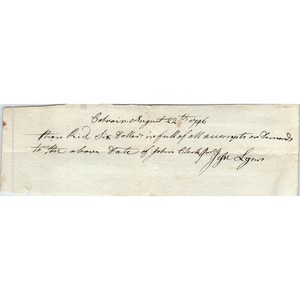 Colrain August 22th 1796
then Recd Six Dollars in full of all accompts or Demands
to the above Date of John Clark Jr Lyons